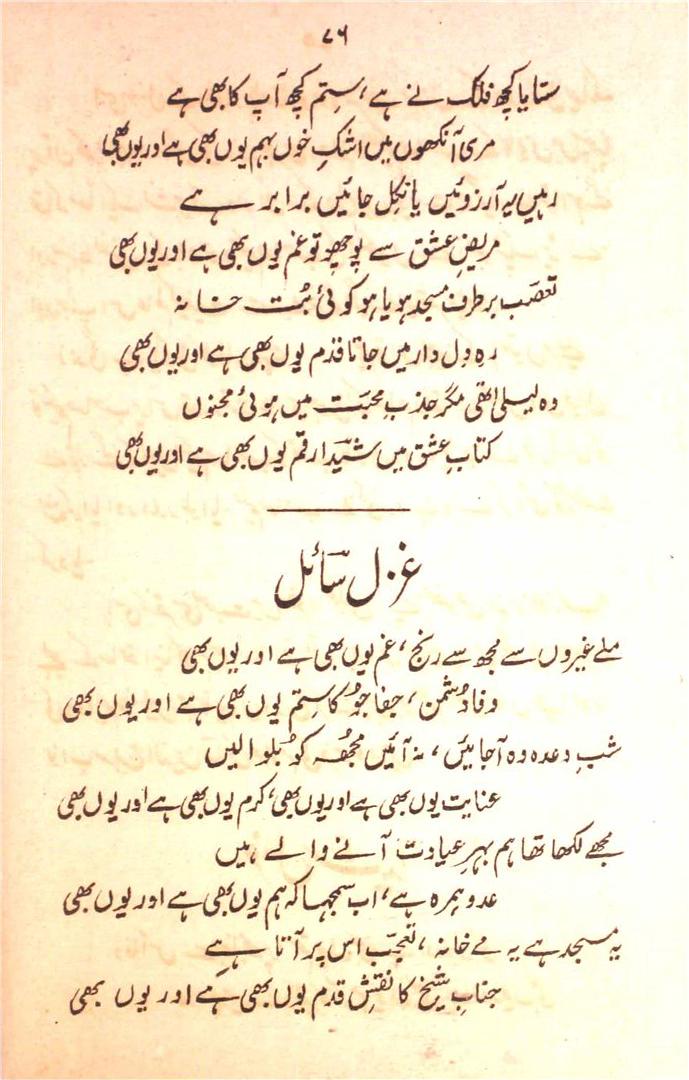 ۷۶
ستایا کچھ فلک نے ہے، ستم کچھ آپ کا بھی ہے
مری آنکھوں میں اشکِ خوں بہم یوں بھی ہے اور یوں بھی
رہیں یہ آرزوئیں یا نکل جائیں برابر ہے
مریضِ عشق سے پوچھو تو غم یوں بھی ہے اور یوں بھی
تعصّب برطرف مسجد ہو یا ہو کوئی بُت خانہ
رہِ دل دار میں جاتا قدم یوں بھی ہے اور یوں بھی
وہ لیلیٰ تھی مگر جذبِ محبّت میں ہوئی مجنوں
کتابِ عشق میں شیؔدا رقم یوں بھی ہے اور یوں بھی
غزل سائؔل
ملے غیروں سے مجھ سے رنج، غم یوں بھی ہے اور یوں بھی
وفا دُشمن، جفا جُو کا ستم یوں بھی ہے اور یوں بھی
شبِ وعدہ وہ آجائیں، نہ آئیں مجھ کو بُلوا لیں
عنایت یوں بھی ہے اور یوں بھی، کرم یوں بھی ہے اور یوں بھی
مجھے لکھا تھا ہم بہرِ عیادت آنے والے ہیں
عدو ہمرہ ہے، اب سمجھا کہ ہم یوں بھی ہے اور یوں بھی
یہ مسجد ہے یہ مے خانہ، تعجّب اس پر آتا ہے
جنابِ شیخ کا نقشِ قدم یوں بھی ہے اور یوں بھی